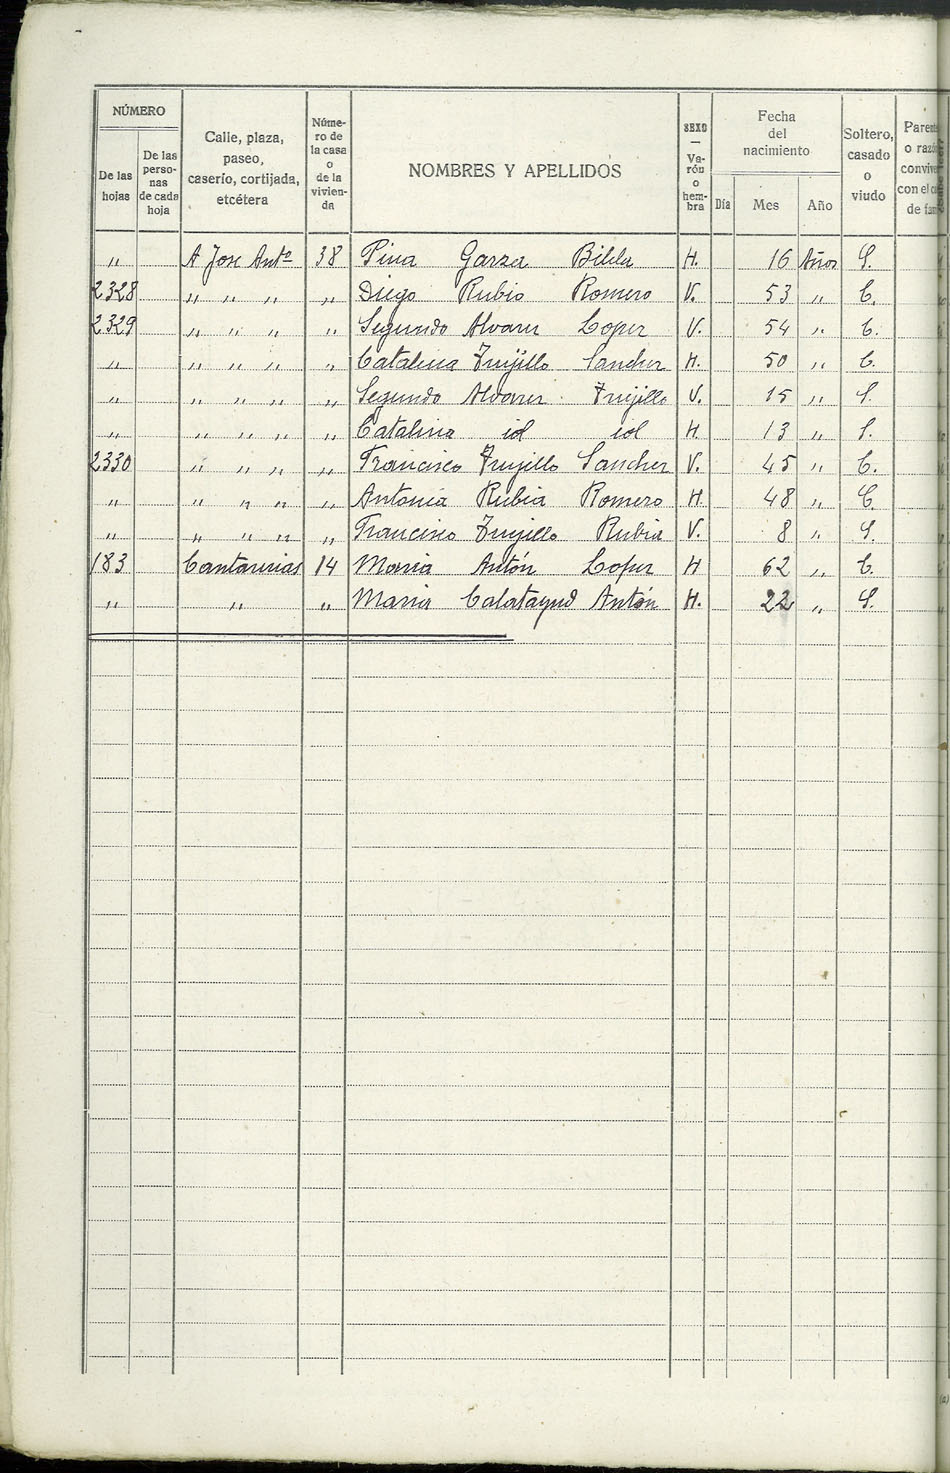 NÚMERO
De las hojas
De las perso- nas de cada hoja
Calle, plaza, paseo, caserío, cortijada, etcétera
Núme- ro de la casa o de la vivien- da
NOMBRES Y APELLIDOS
SEXO — Va- rón o hem- bra
Fecha del nacimiento
Día
Mes
Año
Soltero, casado o viudo
Parent
o razó
convive
con el c
de fam
" A Jose Antº 38 Pina Garza H. 16 Años S.
2328 " " " " Diego Rubio Romero V. 53 " C.
2329 " " " " Segundo Alvarez Lopez V. 54 " C.
" " " " " Catalina Trujillo Sanchez H. 50 " C.
" " " " " Segundo Alvarez Trujillo V. 15 " S.
" " " " " Catalina id id H. 13 " S.
2330 " " " " Francisco Trujillo Sanchez V. 45 " C.
" " " " " Antonia Rubia Romero H. 48 " C.
" " " " " Francisco Trujillo Rubia V. 8 " S.
183 Cantarerias 14 Maria Antón Lopez H 62 " C.
" " " Maria Calatayud Antón H. 22 " S.